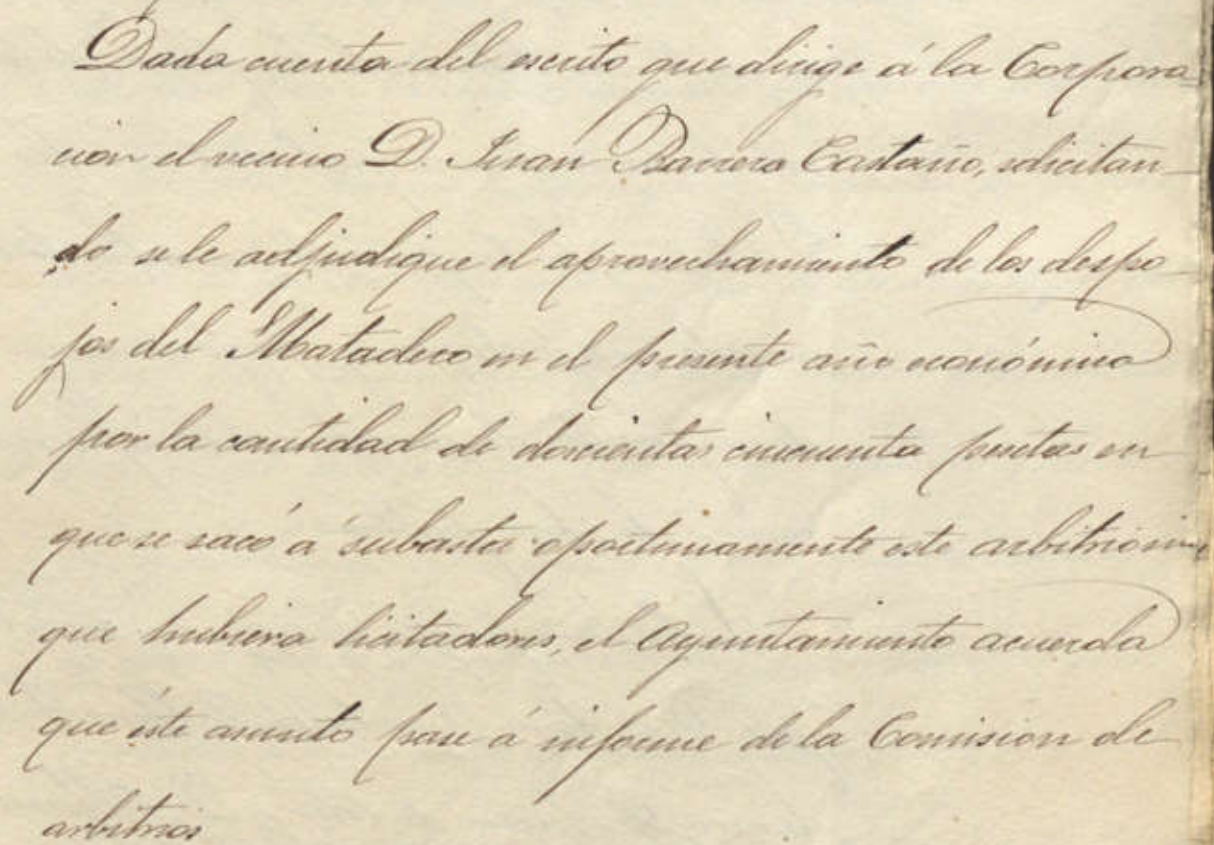 Dada cuenta del escrito que dirige á la Corpora
cion el vecino D. Juan Barrero Castaño, solicitan-
do se le adjudique el aprovechamiento de los despo-
jos del Matadero en el presente año económico
por la cantidad de doscientas cincuenta pesetas en
que se sacó á subasta oportunamente este arbitrio sin
que hubiera licitadores, el Ayuntamiento acuerda
que éste asunto pase á informe de la Comision de
arbitrios